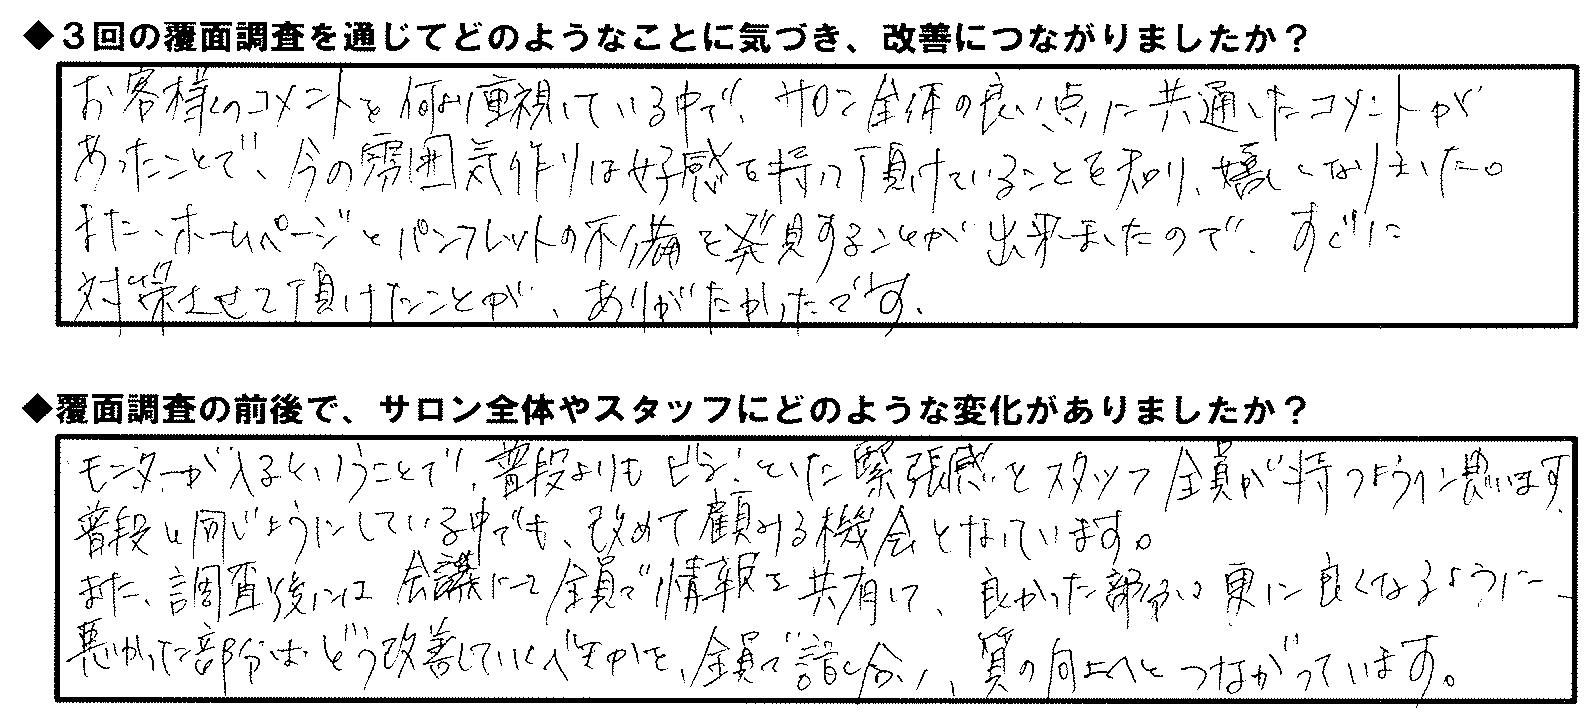 ◆３回の覆面調査を通じてどのようなことに気づき、改善につながりましたか？
お客様のコメントを何より重視している中で、サロン全体の良い点に共通したコメントが
あったことで、今の雰囲気作りは好感を持って頂けていることを知り、嬉しくなりました。
また、ホームページとパンフレットの不備を発見することが出来ましたので、すぐに
対策させて頂けたことが、ありがたかったです。
◆覆面調査の前後で、サロン全体やスタッフにどのような変化がありましたか？
モニターが入るということで、普段よりもピシッとした緊張感をスタッフ全員が持つように思います。
普段と同じようにしている中でも、改めて顧みる機会となっています。
また、調査後には会議にて全員で情報を共有して、良かった部分は更に良くなるように
悪かった部分はどう改善していくべきかを、全員で話し合い、質の向上へとつながっています。